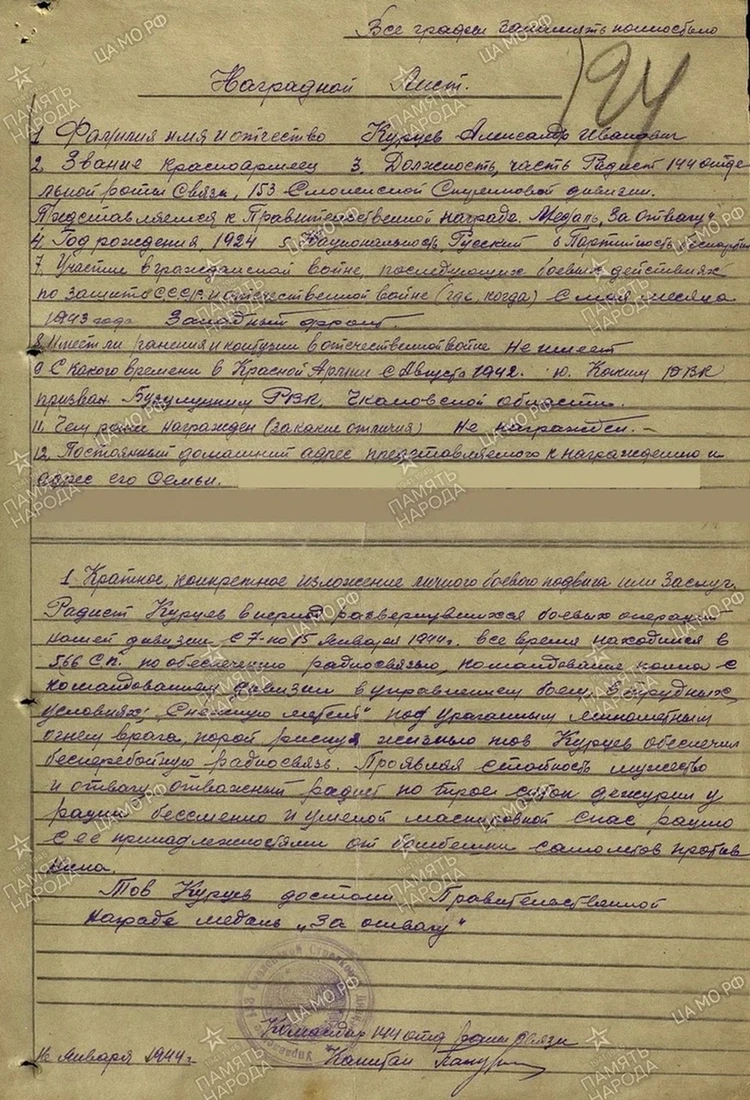 Все графы заполнять полностью
194
Наградной Лист.
1. Фамилия имя и отчество Курцев Александр Иванович
2. Звание красноармеец 3. Должность, часть Радист 144 отде
льной роты Связи, 153 Смоленской Стрелковой дивизии.
Представляется к Правительственной награде Медаль „За отвагу"
4. Год рождения, 1924 5 Национальность Русский 6 Партийность беспартий
7. Участие в гражданской войне, последующих боевых действиях
по защите СССР и отечественной войне (где, когда) С мая месяца
1943 года Западный фронт.
8. Имеет ли ранения и контузии в отечественной войне Не имеет
9. С какого времени в Красной Армии с Августа 1942. 10. Каким РВК
призван Бузулуцким РВК. Чкаловской области.
11. Чем ранее награжден (за какие отличия) Не награжден.-
12. Постоянный домашний адрес представляемого к награждению и
адрес его семьи.
1. Краткое, конкретное изложение личного боевого подвига или заслуг.
Радист Курцев в период развернувшихся боевых операций
нашей дивизии с 7- по 15 января 1944г. все время находился в
566 С.п. по обеспечению радиосвязью, командование полка с
командованием дивизии в управлением боем, в трудных
условиях; „Снежную метель" под ураганным минометным
огнем врага, порой рискуя жизнью тов Курцев обеспечил
бесперебойную радиосвязь. Проявляя стойкость мужество
и отвагу отважный радист по трое суток дежурил у
рации бессменно и умелой маскировкой спас рацию
с ее принадлежностями от бомбежки самолетов против
ника.
Тов Курцев достоин Правительственной
награде медаль „За отвагу"
Командир 144 отд роты связи
16 Января 1944г. Капитан
ПАМЯТЬ НАРОДА
ЦАМО.РФ